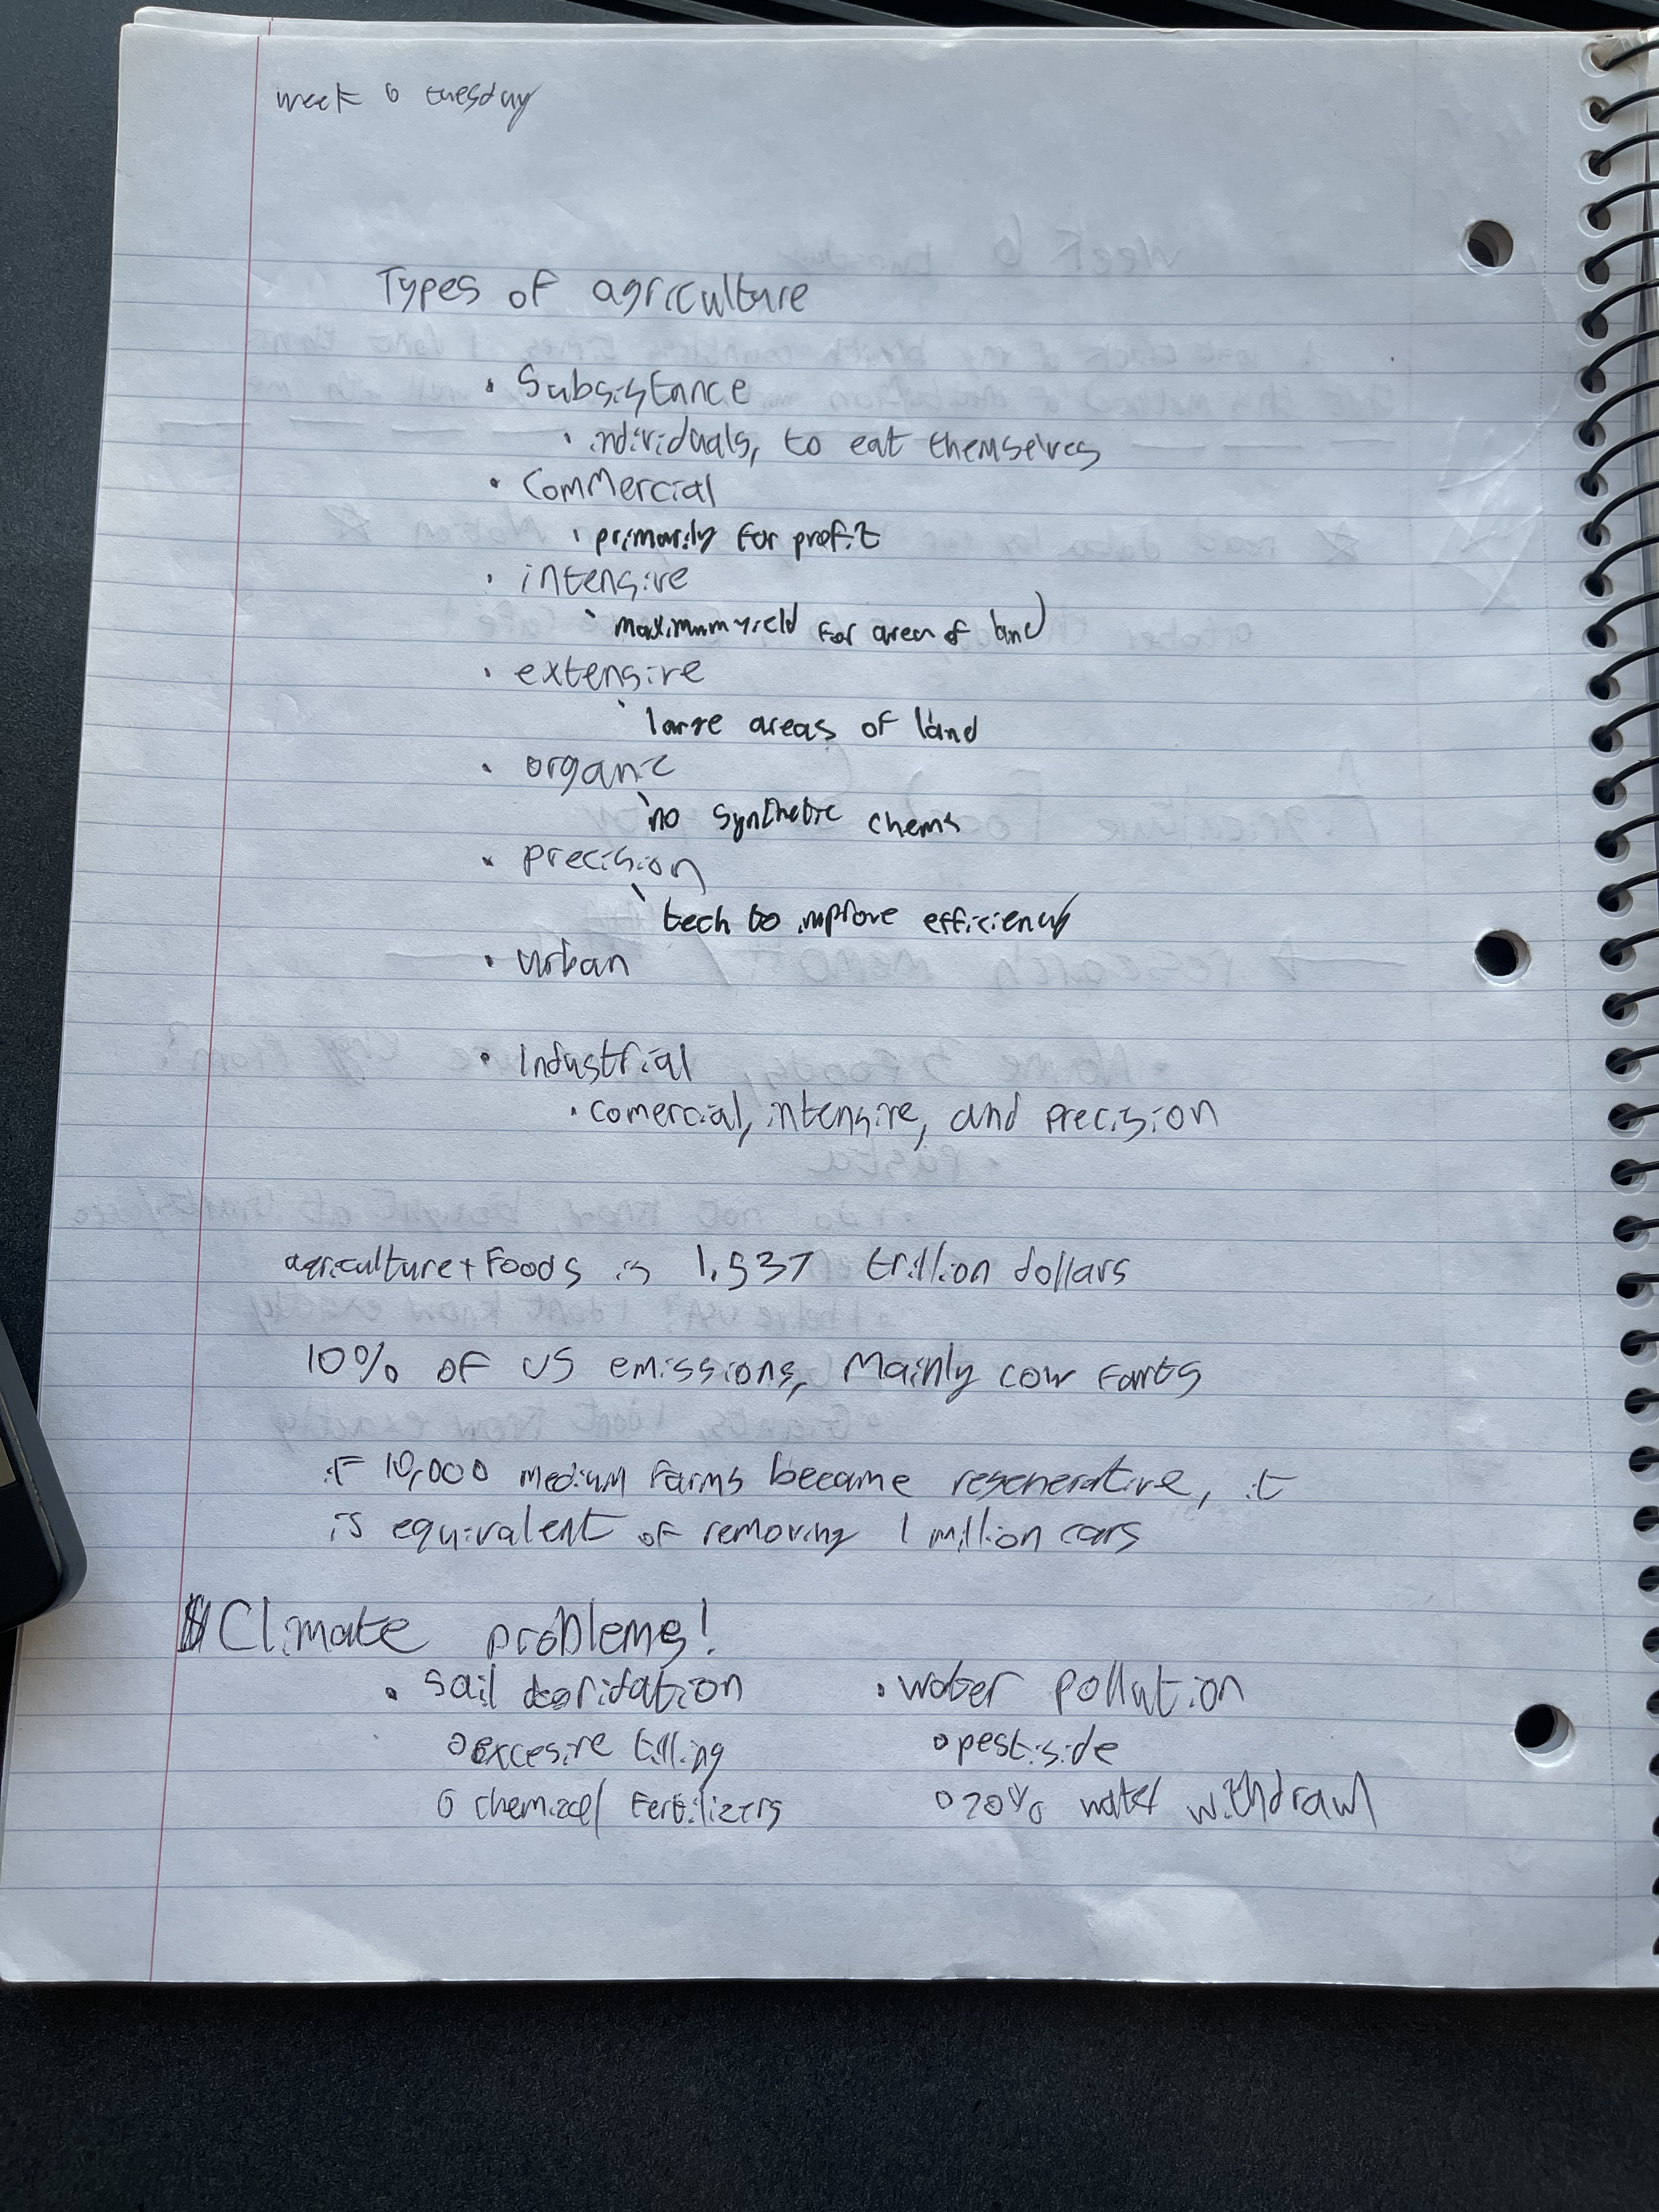 week 6 tuesday
Types of agriculture
• Subsistance
• individuals, to eat themselves
• Commercial
• primarily for profit
• intensive
• maximum yield for area of land
• extensive
• large areas of land
• organic
• no synthetic chems
• precision
• tech to improve efficiency
• urban
• Industrial
• comercial, intensive, and precision
agriculture + Foods is 1.537 trillion dollars
10% of US emissions, Mainly cow farts
if 10,000 medium farms became regenerative, it
is equivalent of removing 1 million cars
Climate problems!
• Sail • water pollution
o excesive tilling o pestiside
o chemical Fertilizers o 20% water withdrawl